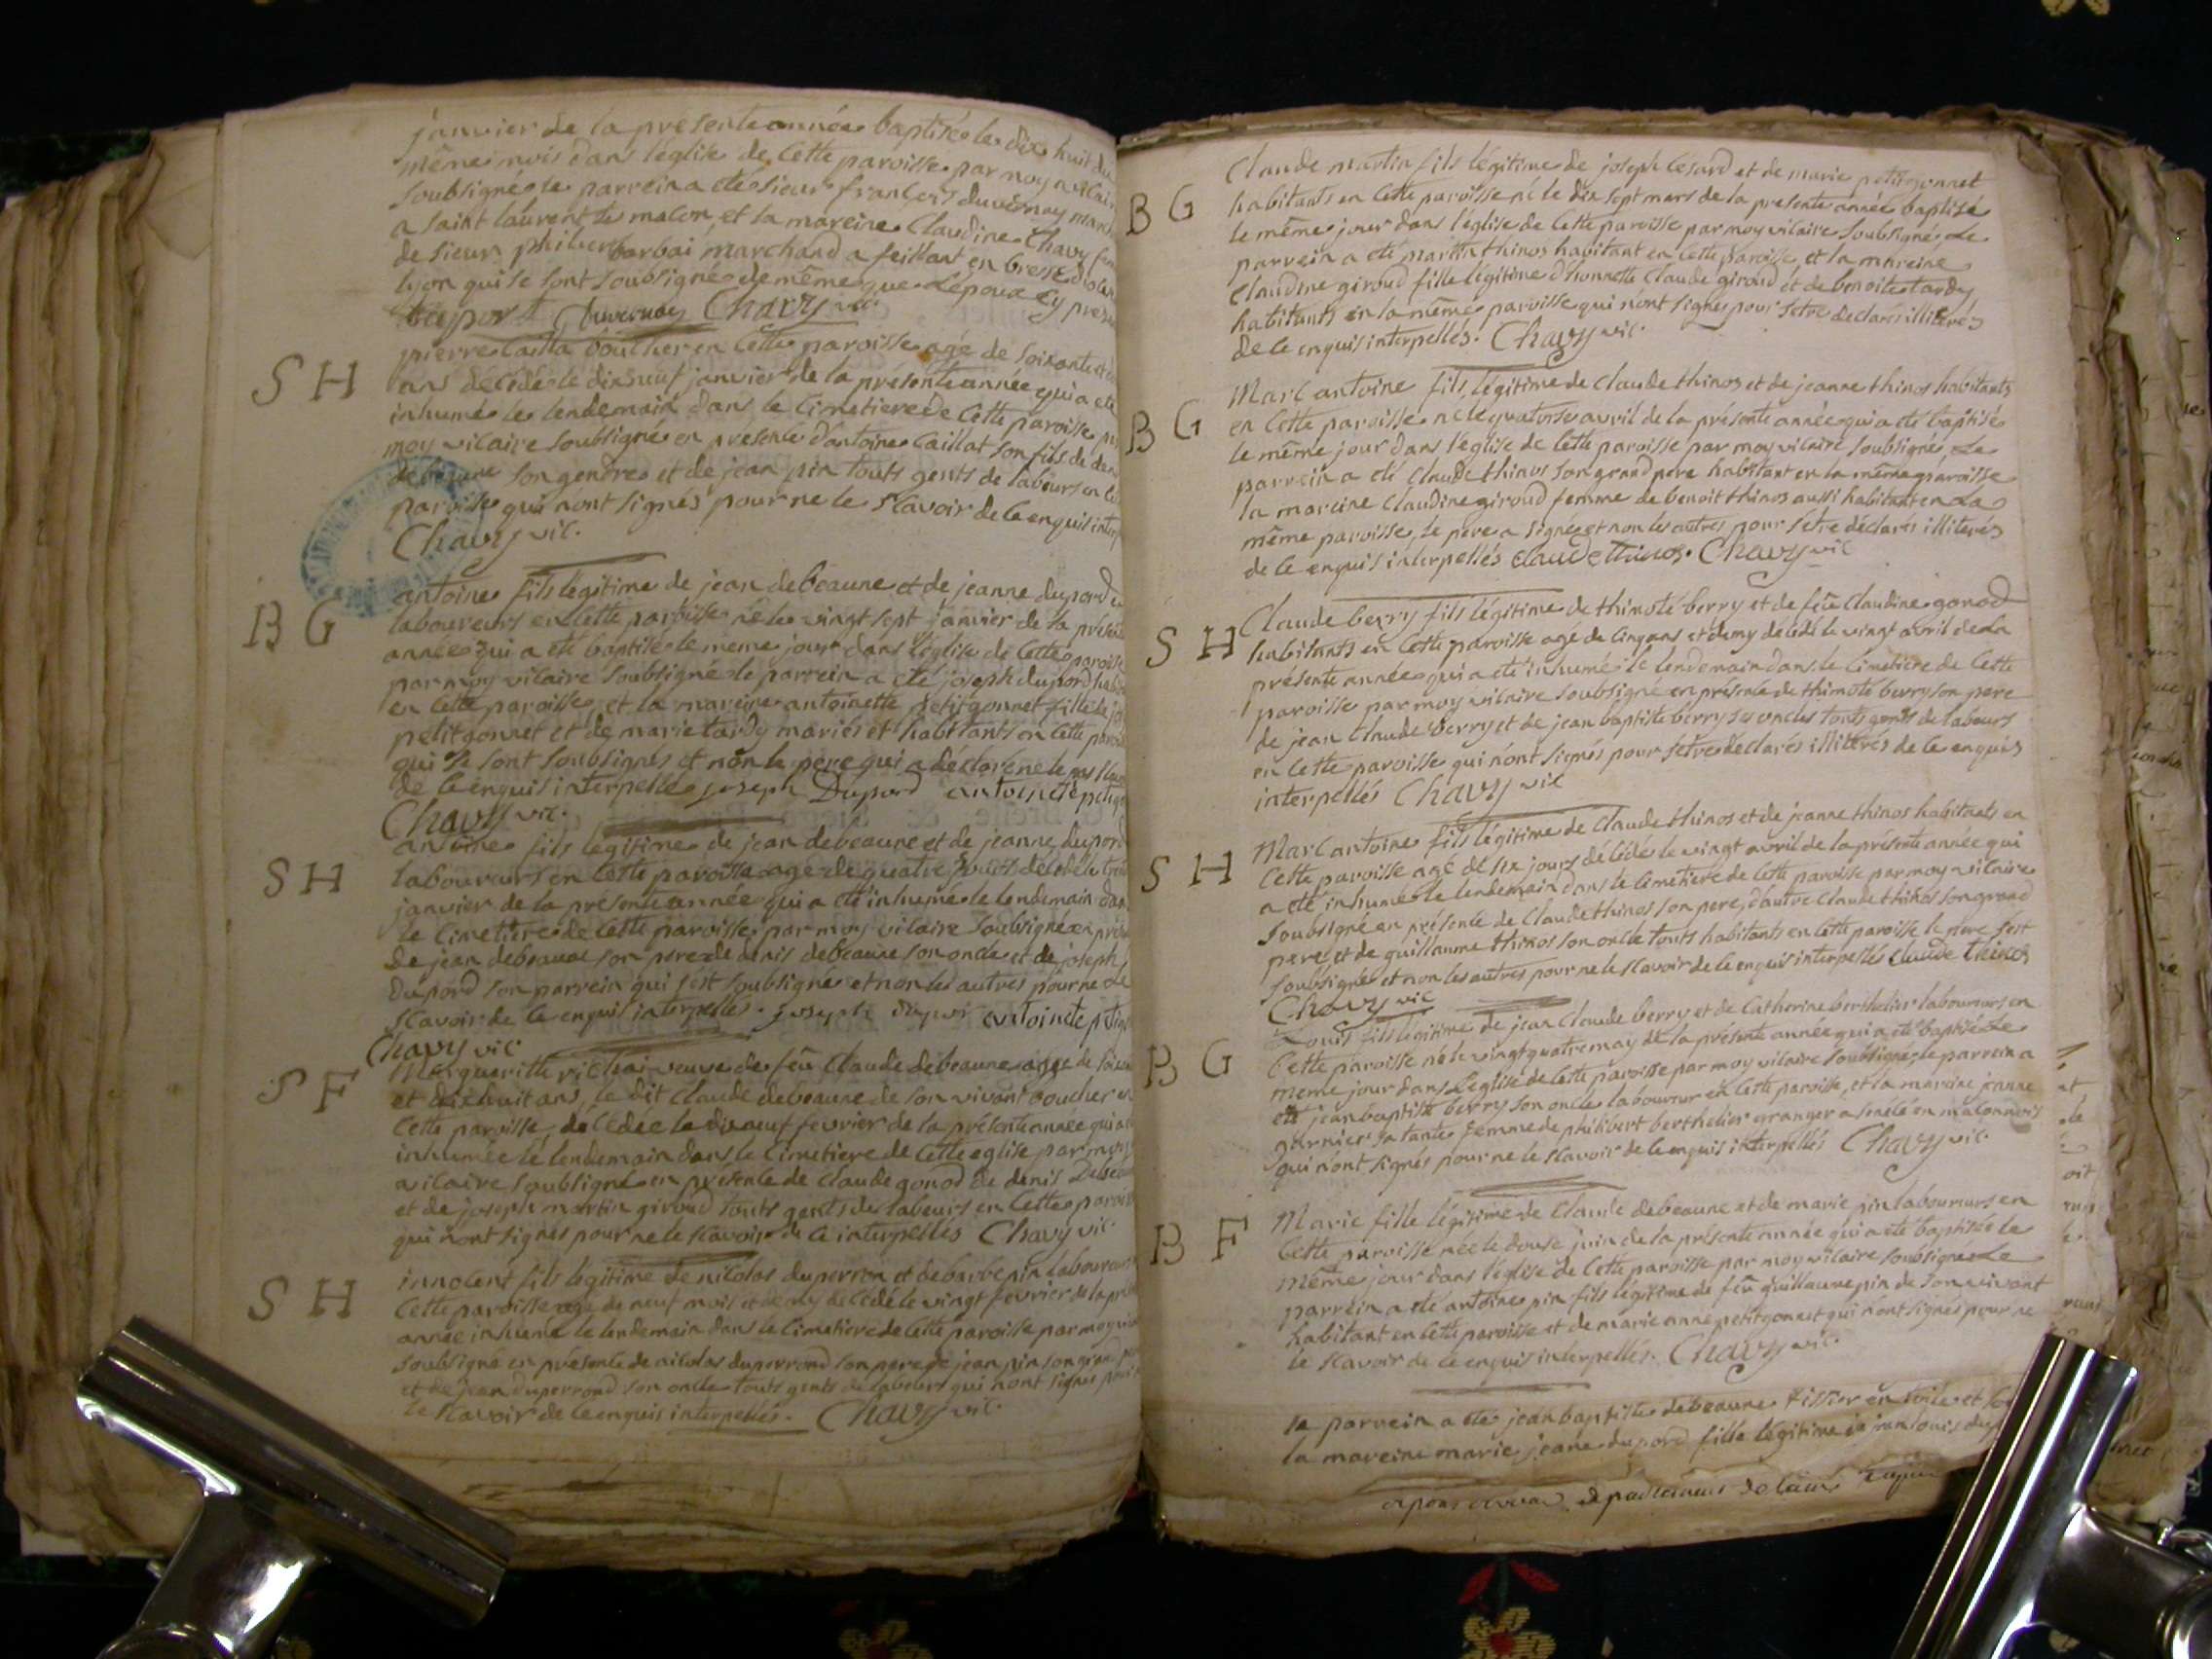 janvier de la présente année baptisé le dix huit du
même mois dans l'église de cette paroisse par moy vicair
soubsigné le parrein a été sieur françois duvernay march
a saint laurent les macon, et la mareine Claudine Chavy fem
de sieur philibert barbai marchand a feillant en bresse
lyon qui se sont soubsigné de même que
duport Duvernay Chavy vic
S H
pierre Cailla boucher en cette paroisse agé de soixante et
ans décédé le dixneuf janvier de la présente année qui a été
inhumé le lendemain dans le cimetiere de cette paroisse par
moy vicaire soubsigné en présence d'antoine Caillat son fils de denis
debeaune son gendre et de jean pin touts gents de labeurs en
paroisse qui n'ont signés pour ne le scavoir de ce enquis interp
Chavy vic.
B G
antoine fils légitime de jean debeaune et de jeanne dupord
laboureurs en cette paroisse né le vingt sept janvier de la présente
année qui a été baptisé le même jour dans l'église de cette paroisse
par moy vicaire soubsigné le parrein a été joseph dupord habit
en cette paroisse, et la mareine antoinette petitgonnet fille de
petitgonnet et de marie tardy mariés et habitants en cette paroi
qui se sont soubsignés et non le pere qui a déclaré ne le pas scav
de ce enquis interpellé joseph Dupord antoinete petitg
Chavy vic.
S H
antoine fils légitime de jean debeaune et de jeanne dupord
laboureurs en cette paroisse agé de quatre jours décédé le
janvier de la présente année qui a été inhumé le lendemain dan
le cimetiere de cette paroisse par moy vicaire soubsigné en prés
de jean debeaune son pere de denis debeaune son oncle et de joseph
dupord son parrein qui s'est soubsigné et non les autres pour ne le
scavoir de ce enquis interpellés. joseph dupor antoinete petitg
Chavy vic
S F
Marguerithe veuve de feu Claude debeaune agée de soixan
et dixhuit ans, le dit Claude debeaune de son vivant boucher en
cette paroisse, decédée le dixneuf fevrier de la présente année qui a
inhumée le lendemain dans le cimetiere de cette église par moy
vicaire soubsigné en présence de claude gonod de denis Debeau
et de joseph martin giroud touts gents de labeurs en cette paroiss
qui n'ont signés pour ne le scavoir de ce interpellés Chavy vic
S H
innocent fils légitime de nicolas duperron et de barbe pin laboureurs
cette paroisse agé de neuf mois et demy décédé le vingt fevrier de la prés
année inhumé le lendemain dans le cimetiere de cette paroisse par moy vic
soubsigné en présence de nicolas duperrond son pere de jean pin son gran
et de jean duperrond son oncle touts gents de labeurs qui n'ont signés
le scavoir de ce enquis interpellés. Chavy vic.
B G
Claude martin fils légitime de joseph Cesard et de marie petitgonnet
habitants en cette paroisse né le dix sept mars de la présente année baptisé
le même jour dans l'église de cette paroisse par moy vicaire soubsigné Le
parrein a été martin thinos habitant en cette paroisse, et la mareine
Claudine giroud fille légitime d'honnette Claude giroud et de benoite tardy
habitants en la même paroisse qui n'ont signés pour s'etre déclarés illiterés
de ce enquis interpellés. Chavy vic.
B G
Marc antoine fils légitime de Claude thinos et de jeanne thinos habitants
en cette paroisse né le quatorse avril de la présente année qui a été baptisé
le même jour dans l'église de cette paroisse par moy vicaire soubsigné, Le
parrein a été Claude thinos son grand pere habitant en la même paroisse
la mareine Claudine giroud femme de benoit thinos aussi habitant en La
même paroisse, le pere a signé et non les autres pour s'etre déclarés illiterés
de ce enquis interpellés claude thinos. Chavy vic
S H
Claude berry fils légitime de thimoté berry et de feüe Claudine gonod
habitants en cette paroisse agé de cinq ans et demy décédé le vingt avril de La
présente année qui a été inhumé le lendemain dans le cimetiere de cette
paroisse par moy vicaire soubsigné en présence de thimoté berry son pere
de jean Claude berry et de jean baptiste berry ses oncles touts gents de labeurs
en cette paroisse qui n'ont signés pour s'etre déclarés illiterés de ce enquis
interpellés Chavy vic
S H
Marc antoine fils légitime de Claude thinos et de jeanne thinos habitants en
cette paroisse agé de six jours décédé le vingt avril de la présente année qui
a été inhumé le lendemain dans le cimetiere de cette paroisse par moy vicaire
soubsigné en présence de Claude thinos son pere, d'autre Claude thinos son grand
pere et de guillaume thinos son oncle touts habitants en cette paroisse le pere s'est
soubsigné et non les autres pour ne le scavoir de ce enquis interpellés claude thinos
Chavy vic
B G
Louis fils légitime de jean Claude berry et de Catherine berthelier laboureurs en
cette paroisse né le vingtquatre may de la présente année qui a été baptisé Le
meme jour dans l'eglise de cette paroisse par moy vicaire soubsigné, le parrein a
été jean baptiste berry son oncle laboureur en cette paroisse, et la mareine jeanne
garnier sa tante femme de philibert berthelier granger a senécé en maconnois
qui n'ont signés pour ne le scavoir de ce enquis interpellés Chavy vic.
B F
Marie fille légitime de Claude debeaune et de marie pin laboureurs en
cette paroisse née le douse juin de la présente année qui a été baptisée le
même jour dans l'église de cette paroisse par moy vicaire soubsigné Le
parrein a été antoine pin fils légitime de feu guillaume pin de son vivant
habitant en cette paroisse et de marie anne petitgonnet qui n'ont signés pour ne
le scavoir de ce enquis interpellés. Chavy vic.
le parrein a été jean baptiste debeaune tissier en toile et
la mareine marie jeane dupord fille légitime de jean louis dup